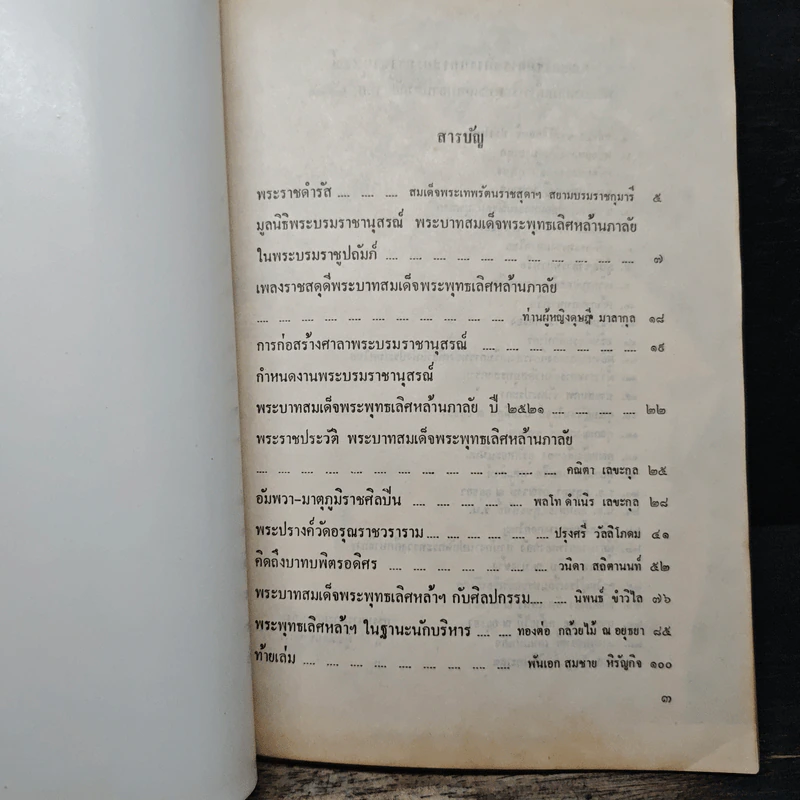 สารบัญ
พระราชดำรัส .... .... .... สมเด็จพระเทพรัตนราชสุดาฯ สยามบรมราชกุมารี ๕
มูลนิธิพระบรมราชานุสรณ์ พระบาทสมเด็จพระพุทธเลิศหล้านภาลัย
ในพระบรมราชูปถัมภ์ .... .... .... .... .... .... .... .... .... .... .... ๗
เพลงราชสดุดีพระบาทสมเด็จพระพุทธเลิศหล้านภาลัย
.... .... .... .... .... .... .... .... .... .... .... ท่านผู้หญิงดุษฎี มาลากุล ๑๘
การก่อสร้างศาลาพระบรมราชานุสรณ์ .... .... .... .... .... .... .... ๑๙
กำหนดงานพระบรมราชานุสรณ์
พระบาทสมเด็จพระพุทธเลิศหล้านภาลัย ปี ๒๕๒๑ .... .... .... .... ๒๒
พระราชประวัติ พระบาทสมเด็จพระพุทธเลิศหล้านภาลัย
.... .... .... .... .... .... .... .... .... .... .... .... .... คณิตา เลขะกุล ๒๕
อัมพวา-มาตุภูมิราชศิลปิน .... .... .... .... .... พลโท ดำเนิร เลขะกุล ๒๘
พระปรางค์วัดอรุณราชวราราม .... .... .... .... .... ปรุงศรี วัลลิโภดม ๔๑
คิดถึงบาทบพิตรอดิศร .... .... .... .... .... .... .... วนิดา สถิตานนท์ ๕๒
พระบาทสมเด็จพระพุทธเลิศหล้าฯ กับศิลปกรรม.... .... นิพนธ์ ขำวิไล ๗๖
พระพุทธเลิศหล้าฯ ในฐานะนักบริหาร .... .... ทองต่อ กล้วยไม้ ณ อยุธยา ๘๕
ท้ายเล่ม .... .... .... .... .... .... .... .... .... พันเอก สมชาย หิรัญกิจ ๑๐๐
๓